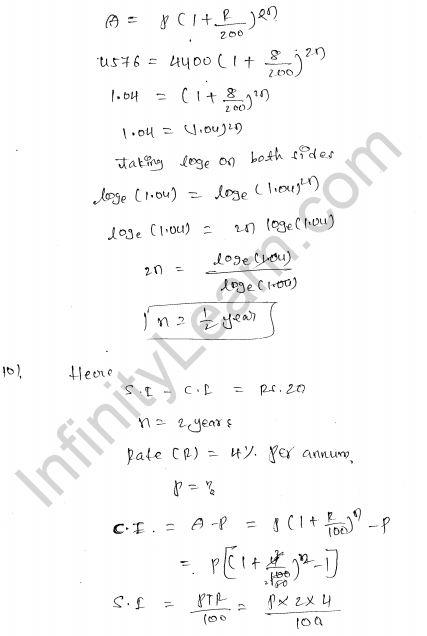 A = P(1 + R/200)^2n
4576 = 4400(1 + 8/200)^2n
1.04 = (1 + 8/200)^2n
1.04 = (1.04)^2n
Taking loge on both sides
loge(1.04) = loge(1.04)^2n
loge(1.04) = 2n loge(1.04)
2n = loge(1.04)/loge(1.04)
n = 1/2 year
10). Here
S.I - C.I = Rs. 20
n = 2 years
Rate (R) = 4% Per annum,
P = ?
C.I. = A - P = P(1 + R/100)^n - P
= P[(1 + 4/100)^2 - 1]
S.I = PTR/100 = P × 2 × 4/100
InfinityLearn.com